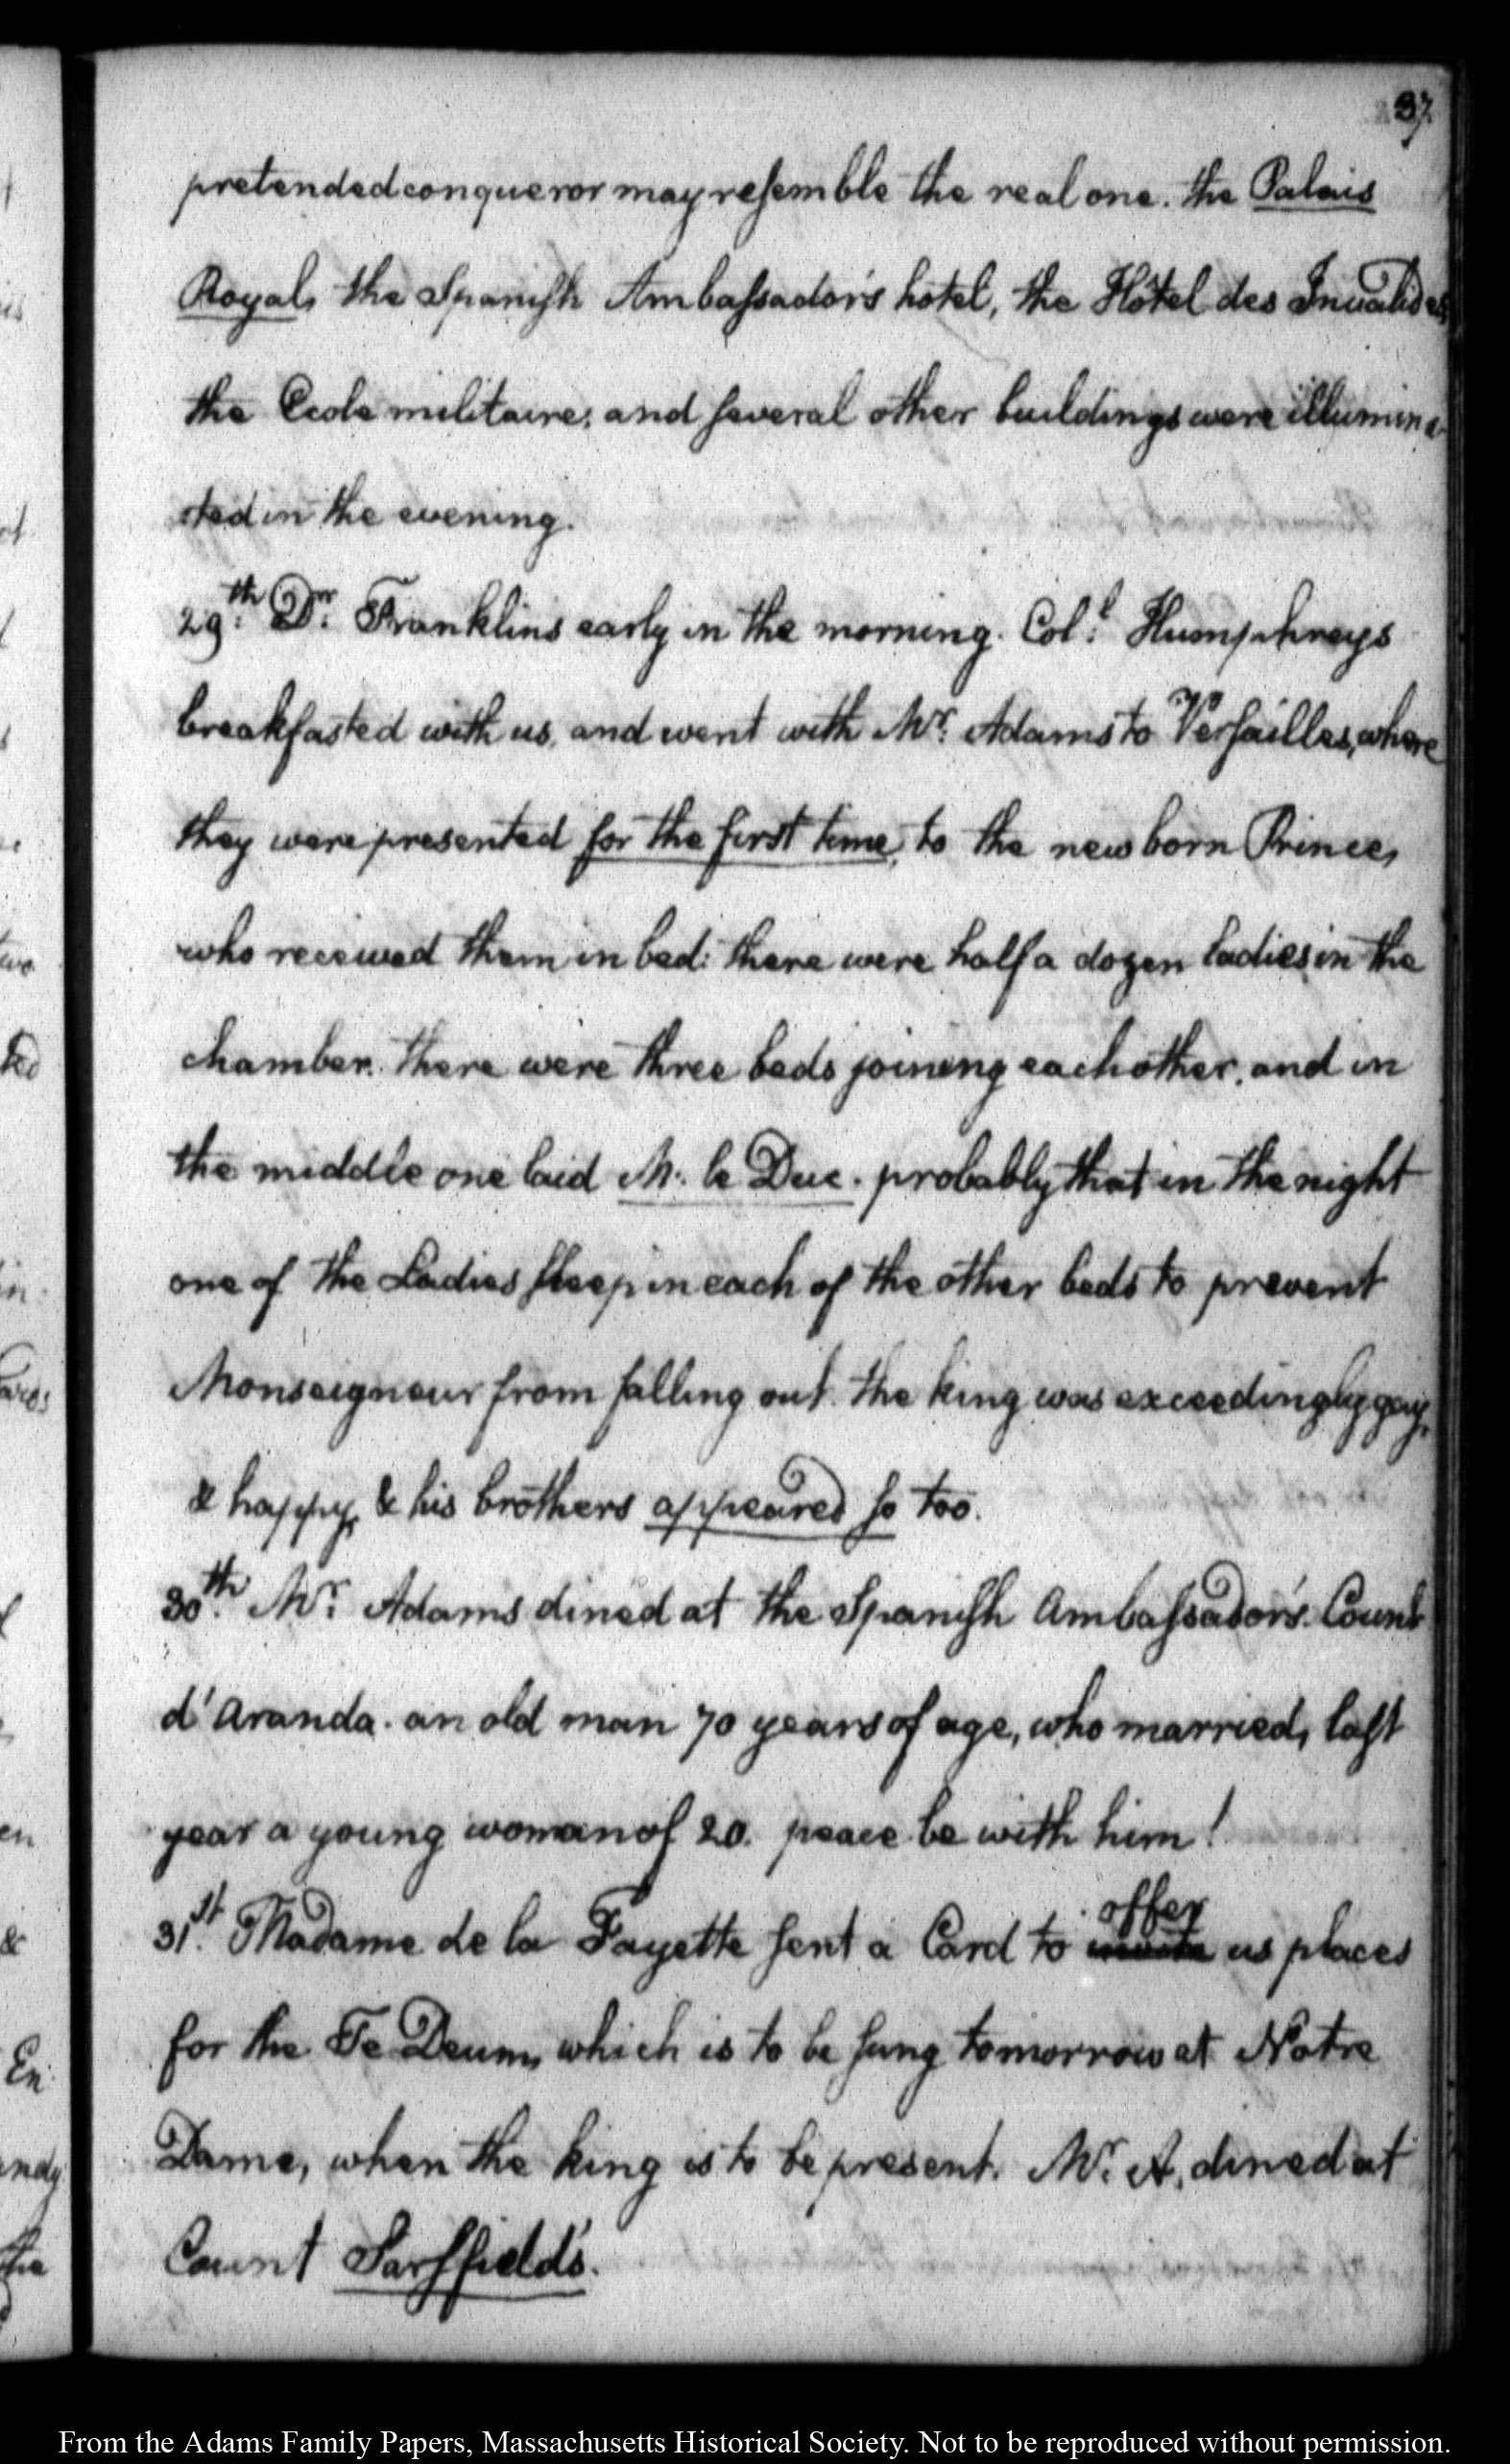 37.
pretended conqueror may resemble the real one. the Palais
Royal, the Spanish Ambassador's hotel, the Hôtel des Invalides,
the Ecole militaire, and several other buildings were illumina-
ted in the evening.
29th. Dr. Franklins early in the morning. Coll. Humphreys
breakfasted with us, and went with Mr. Adams to Versailles, where
they were presented for the first time, to the new born Prince,
who received them in bed: there were half a dozen Ladies in the
chamber. there were three beds joining each other, and in
the middle one laid M. le Duc. probably that in the night
one of the Ladies sleep in each of the other beds to prevent
Monseigneur from falling out. the king was exceedingly gay,
& happy, & his brothers appeared so too.
30th. Mr. Adams dined at the Spanish Ambassador's. Count
d'Aranda. an old man 70 years of age, who married, last
year a young woman of 20. peace be with him!
offer
31st. Madame de la Fayette sent a Card to invite us places
for the Te Deum, which is to be sung tomorrow at Notre
Dame, when the king is to be present. Mr. A. dined at
Count Sarsfield's.
ted
&
En
the
From the Adams Family Papers, Massachusetts Historical Society. Not to be reproduced without permission.